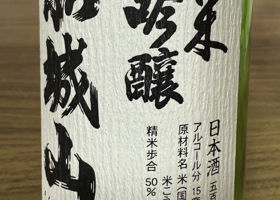 米
吟醸
城山
日本酒
アルコール分 15
原材料名 米（国
米こ
精米歩合 50%